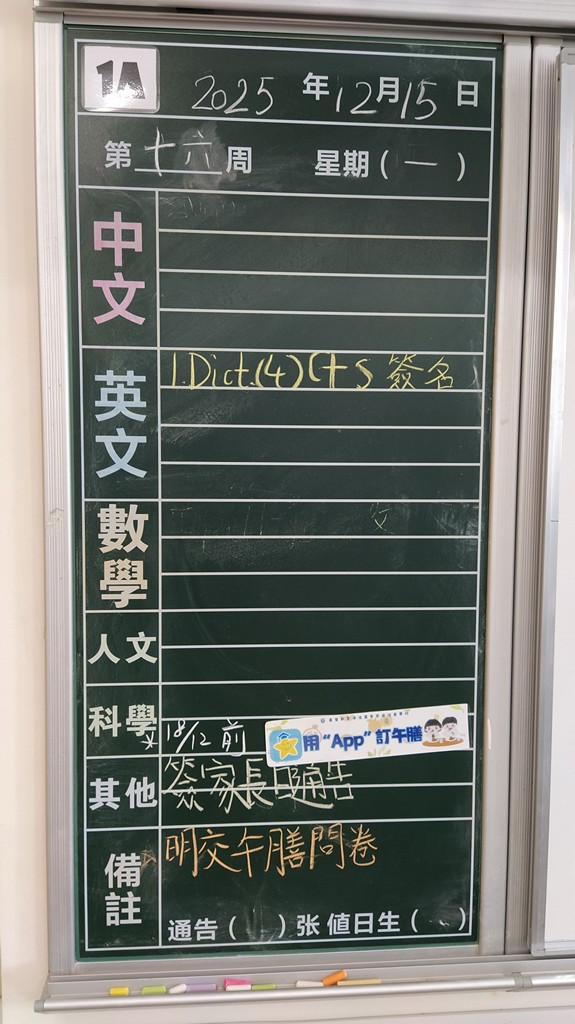 1A 2025 年 12 月 15 日
第 十六 周 星期 ( 一 )
中文
英文
1. Dict.(4) C+S 簽名
數學
人文
科學
18/12 前
用 “App” 訂午膳
其他
簽家長日通告
備註
明交午膳問卷
通告 ( ) 张 値日生 ( )